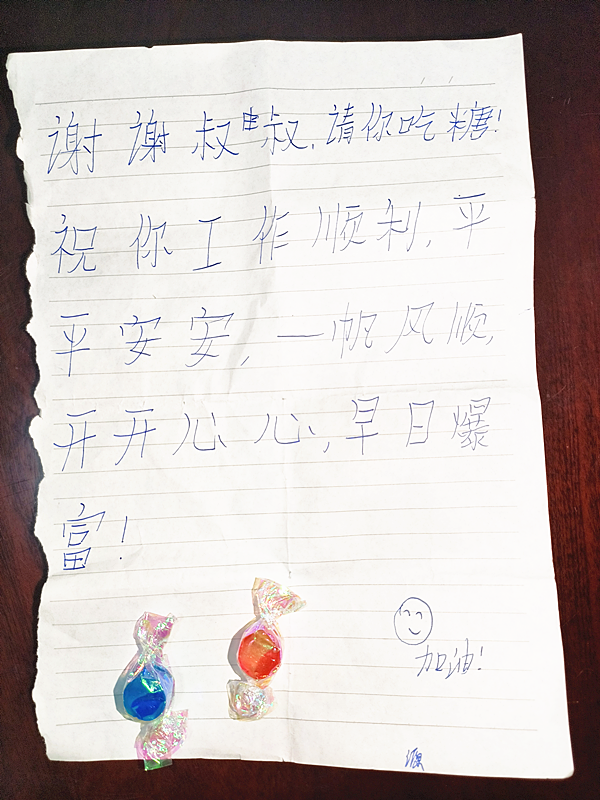 谢谢叔叔,请你吃糖!
祝你工作顺利,平
平安安,一帆风顺,
开开心心,早日爆
富!
加油!